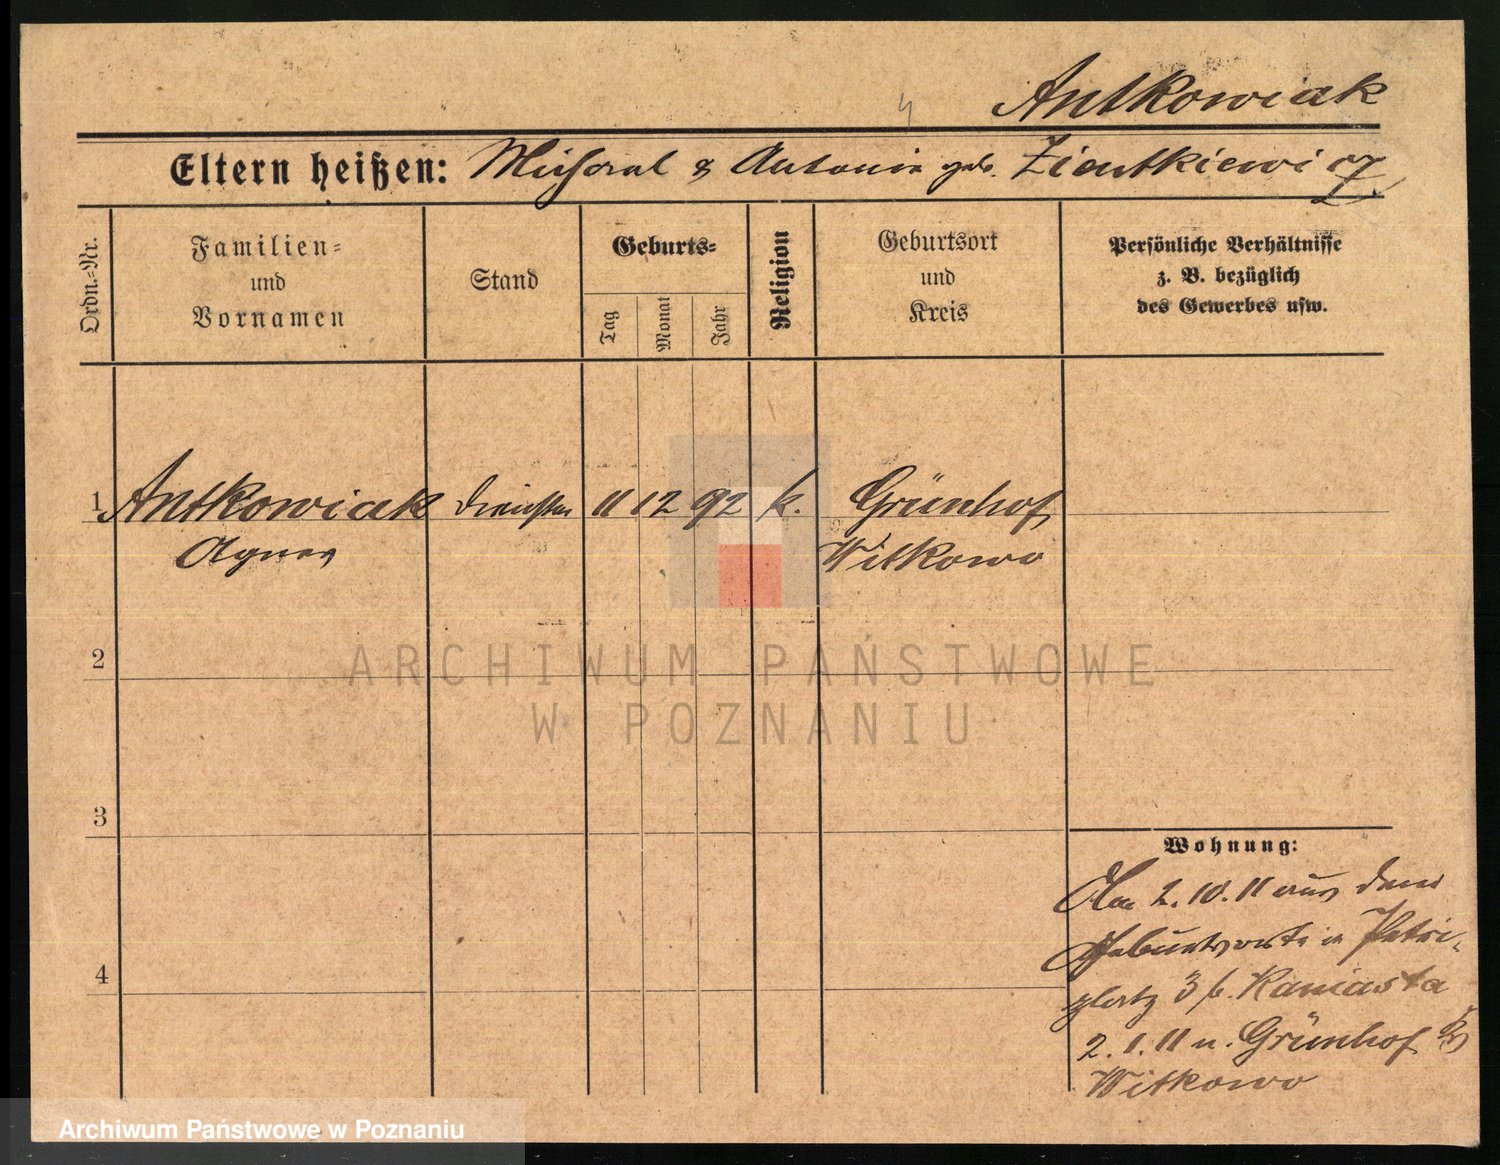 Antkowiak
Eltern heißen: Michael & Antonie geb. Zientkiewicz
Ordn.-Nr.
Familien- und Vornamen
Stand
Geburts-
Tag
Monat
Jahr
Religion
Geburtsort und Kreis
Persönliche Verhältnisse
z. B. bezüglich
des Gewerbes usw.
1 Antkowiak 11 12 92 k. Grünhof
Agnes Witkowo
2
3
4
Wohnung:
2.10.11 aus dem
Geburtsorte in Petri-
platz 3 b. Kaniasta
2.1.11 n. Grünhof
Witkowo
ARCHIWUM PAŃSTWOWE
W POZNANIU
Archiwum Państwowe w Poznaniu